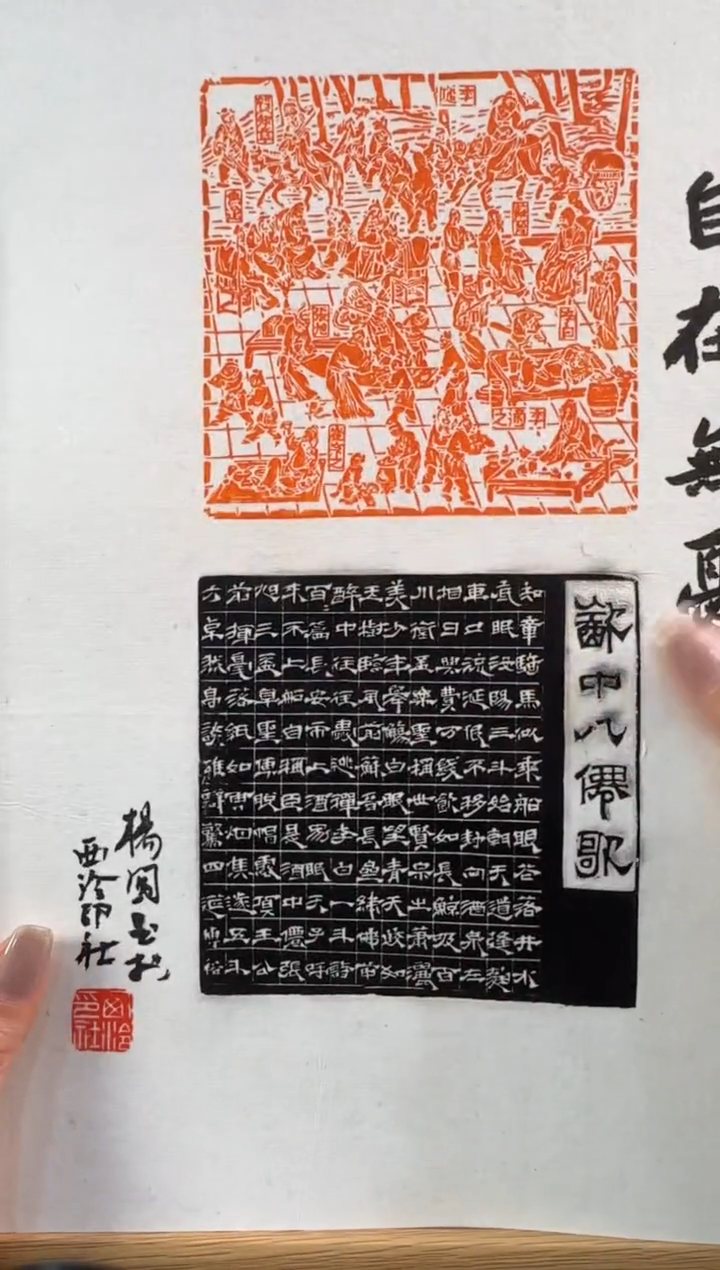 自在無憂
飲中八僊歌
知章騎馬似乘船眼花落井水
底眠汝陽三斗始朝天道逢麴
車口流涎恨不移封向酒泉左
相日興費万錢飲如長鯨吸百
川銜盃樂聖稱世賢宗之蕭灑
美少年舉觴白眼望青天皎如
玉樹臨風前蘇晉長齋繡佛前
醉中往往愛逃禪李白一斗詩
百篇長安市上酒家眠天子呼
來不上船自稱臣是酒中僊張
旭三盃草聖傳脫帽露頂王公
前揮毫落紙如雲烟焦遂五斗
方卓然高談雄辯驚四筵
李白
楊
西泠印社
西泠印社